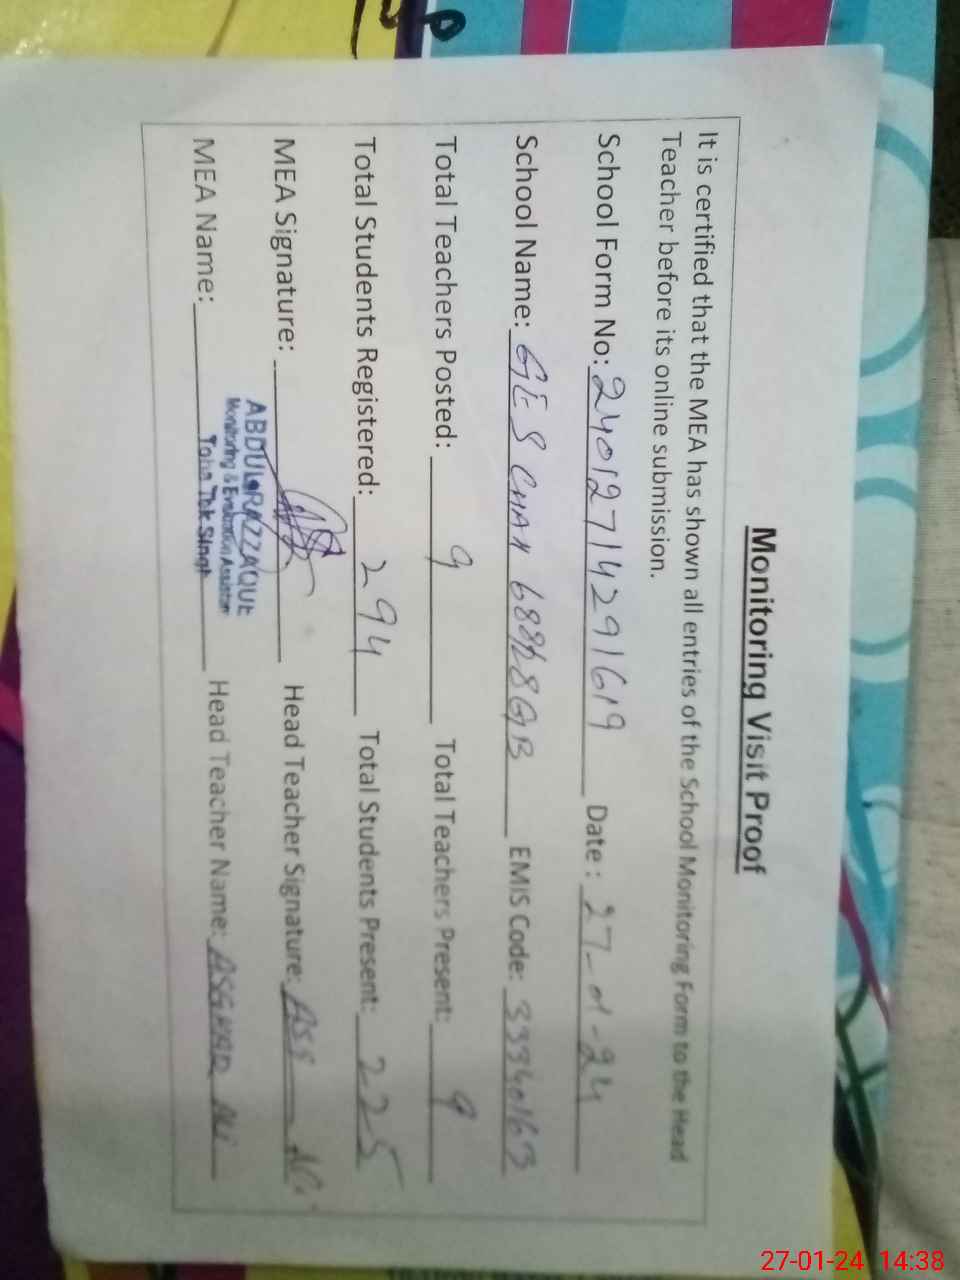 Monitoring Visit Proof
It is certified that the MEA has shown all entries of the School Monitoring Form to the Head
Teacher before its online submission.
School Form No: 24012714291619 Date : 27-01-24
School Name: GES CHAK 688/28GB EMIS Code: 33340163
Total Teachers Posted: 9 Total Teachers Present: 9
Total Students Registered: 294 Total Students Present: 225
MEA Signature: Head Teacher Signature:
ABDUL RAZZAQUE
Monitoring & Evaluation Assistant
Toba Tek Singh
MEA Name: Head Teacher Name: ASGHAR ALI
27-01-24 14:38